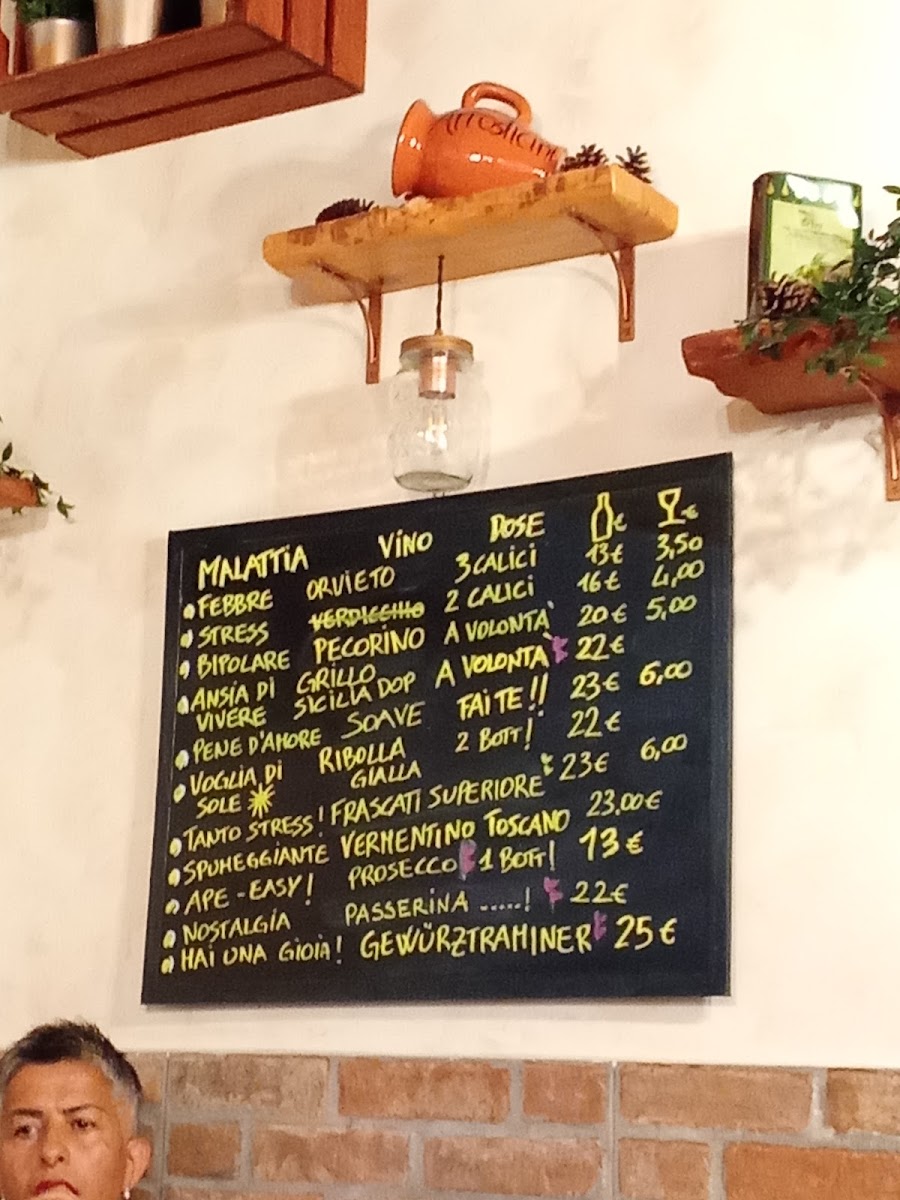 Arrosticini
MALATTIA VINO DOSE € €
FEBBRE ORVIETO 3 CALICI 13€ 3,50
STRESS VERDICCHIO 2 CALICI 16€ 4,00
BIPOLARE PECORINO A VOLONTÀ 20€ 5,00
ANSIA DI GRILLO A VOLONTÀ 22€
VIVERE SICILIA DOP
PENE D'AMORE SOAVE FAITE!! 23€ 6,00
VOGLIA DI RIBOLLA 2 BOTT! 22€
SOLE GIALLA
TANTO STRESS! FRASCATI SUPERIORE 23€ 6,00
SPUMEGGIANTE VERMENTINO TOSCANO 23,00€
APE-EASY! PROSECCO 1 BOTT! 13€
NOSTALGIA PASSERINA .....! 22€
HAI UNA GIOIA! GEWÜRZTRAMINER 25€